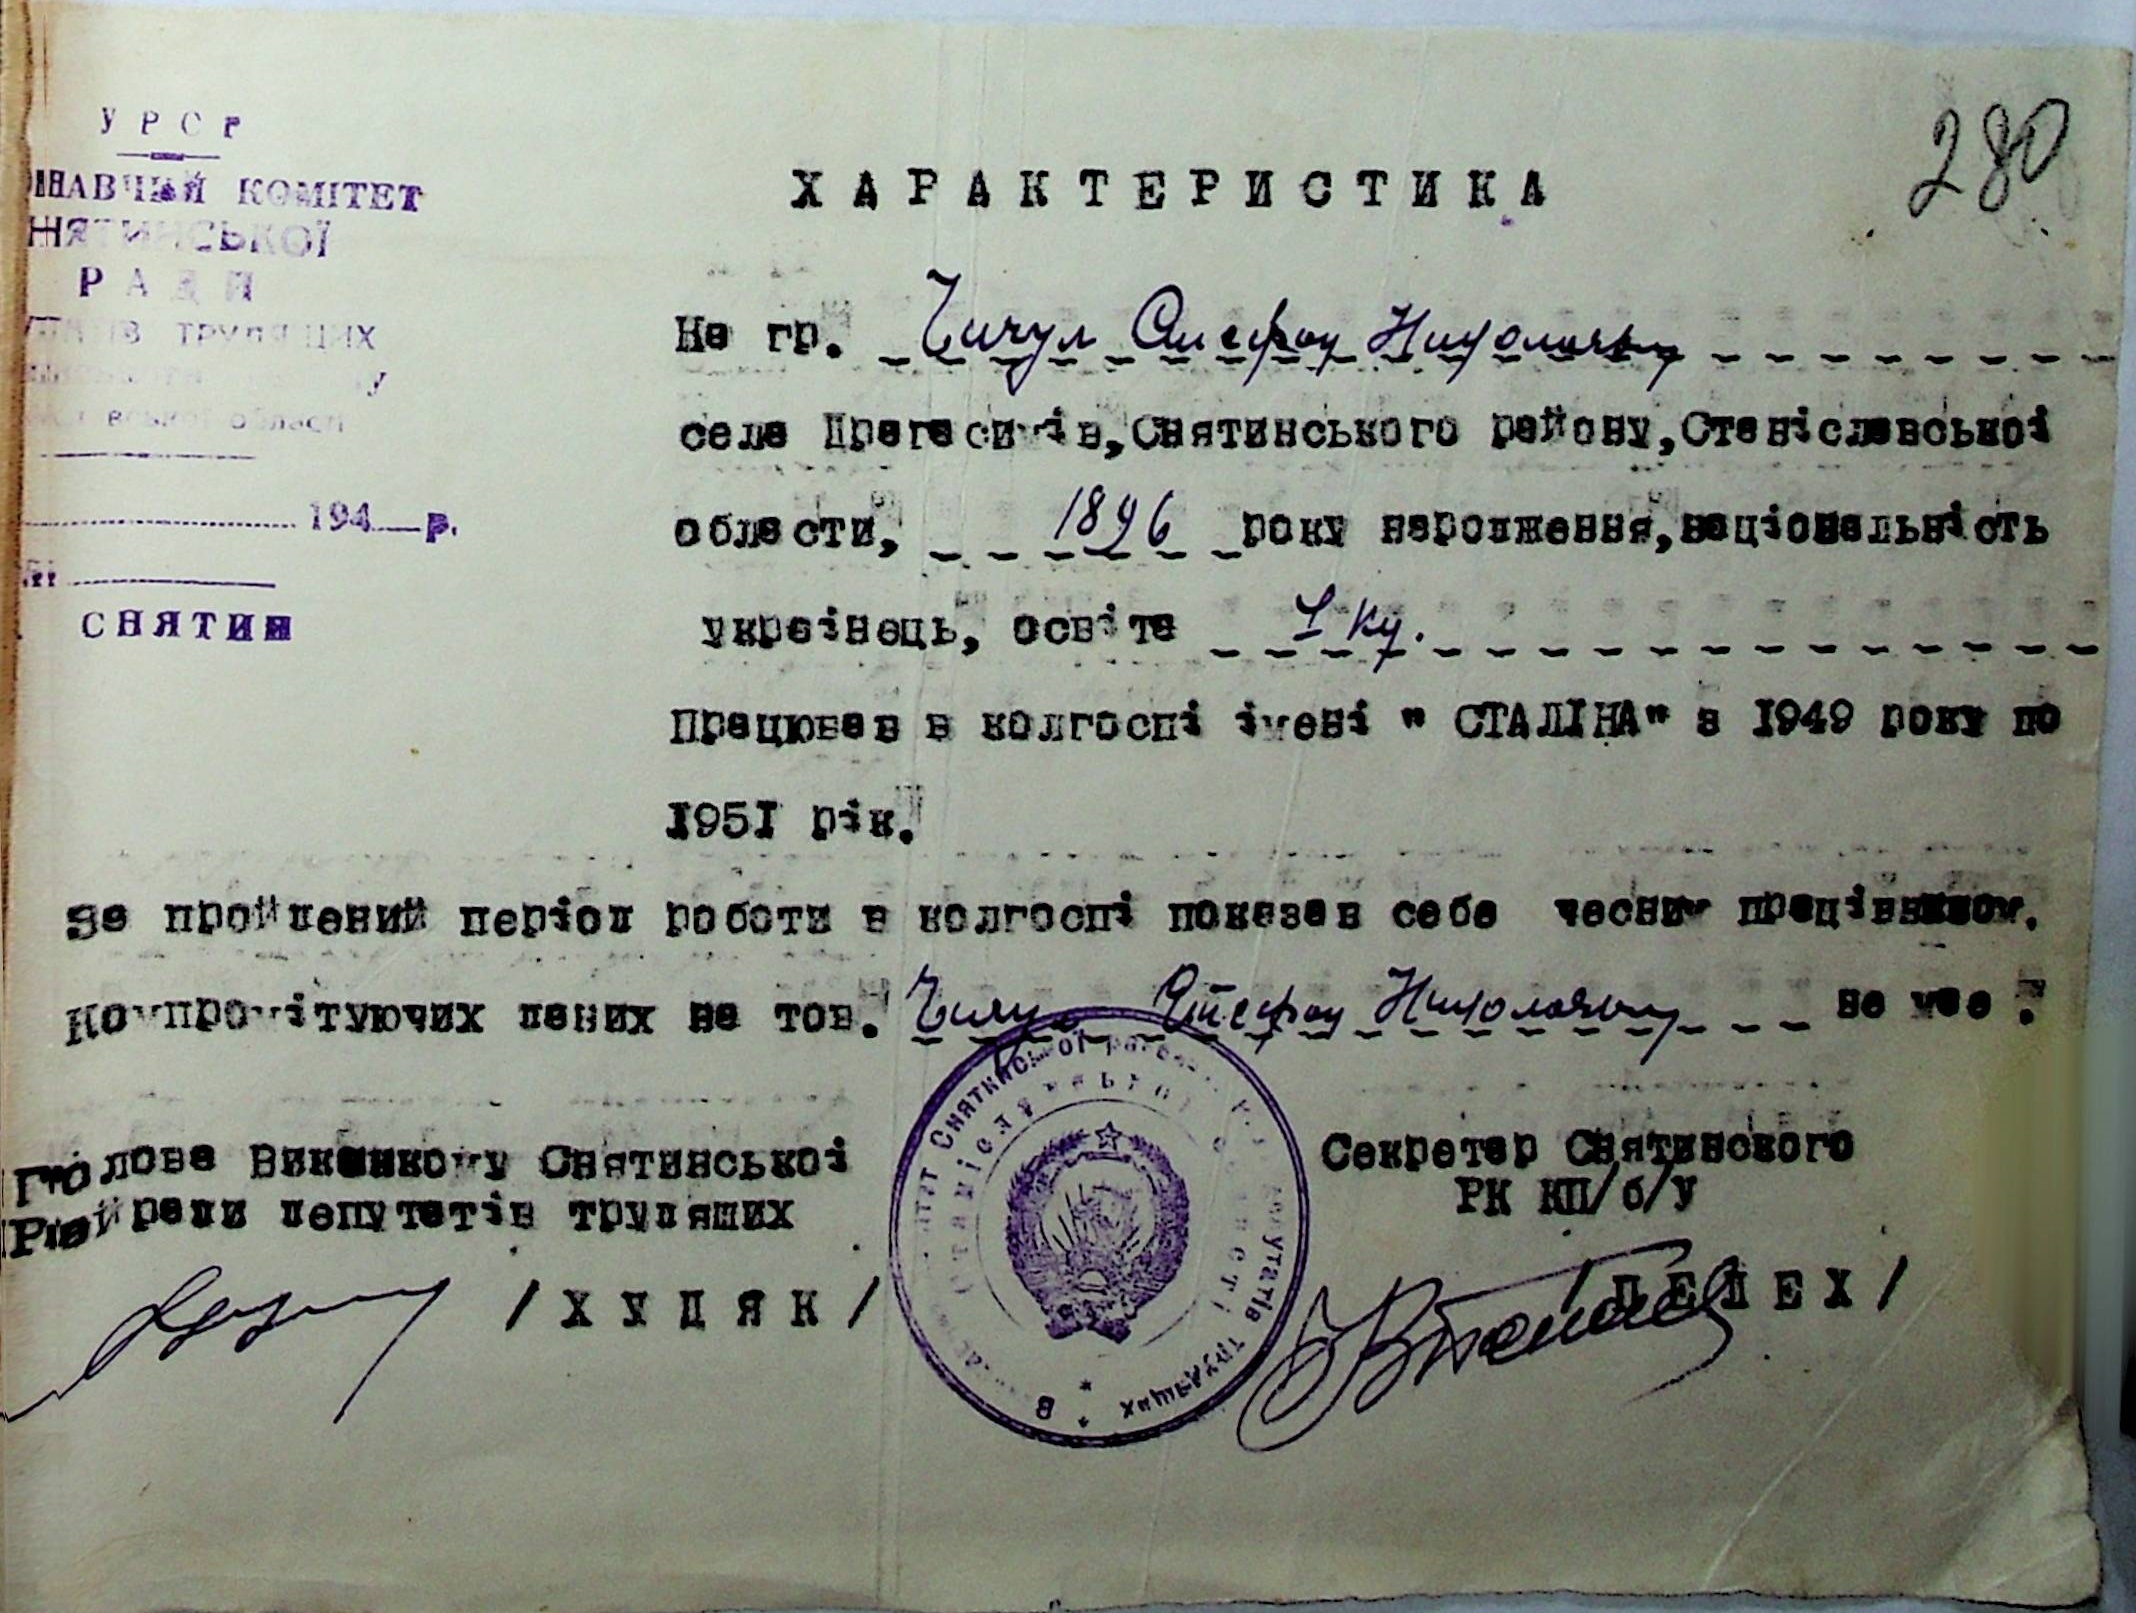 У Р С Р
ОНАВЧИЙ КОМІТЕТ
НЯТИНСЬКОЇ
Р А Д И
трудящих
області
194 р.
СНЯТИН
280
ХАРАКТЕРИСТИКА
На гр. Чичул Стефан Николаевич
села Драгасимів, Снятинського району, Станіславської
области, 1896 року народження, національність
українець, освіта 1 кл.
Працював в колгоспі імені " СТАЛІНА" з 1949 року по
1951 рік.
За пройдений період роботи в колгоспі показав себе чесним працівником.
Компромітуючих даних на тов. Чичул Стефан Николаевич не має.
Голова Виконкому Снятинської
Райради депутатів трудящих
/ Х У Д Я К /
Секретар Снятинского
РК КП/б/У
/ П Е Л Е Х /
Снятинської депутатів трудящих
Станіславської області